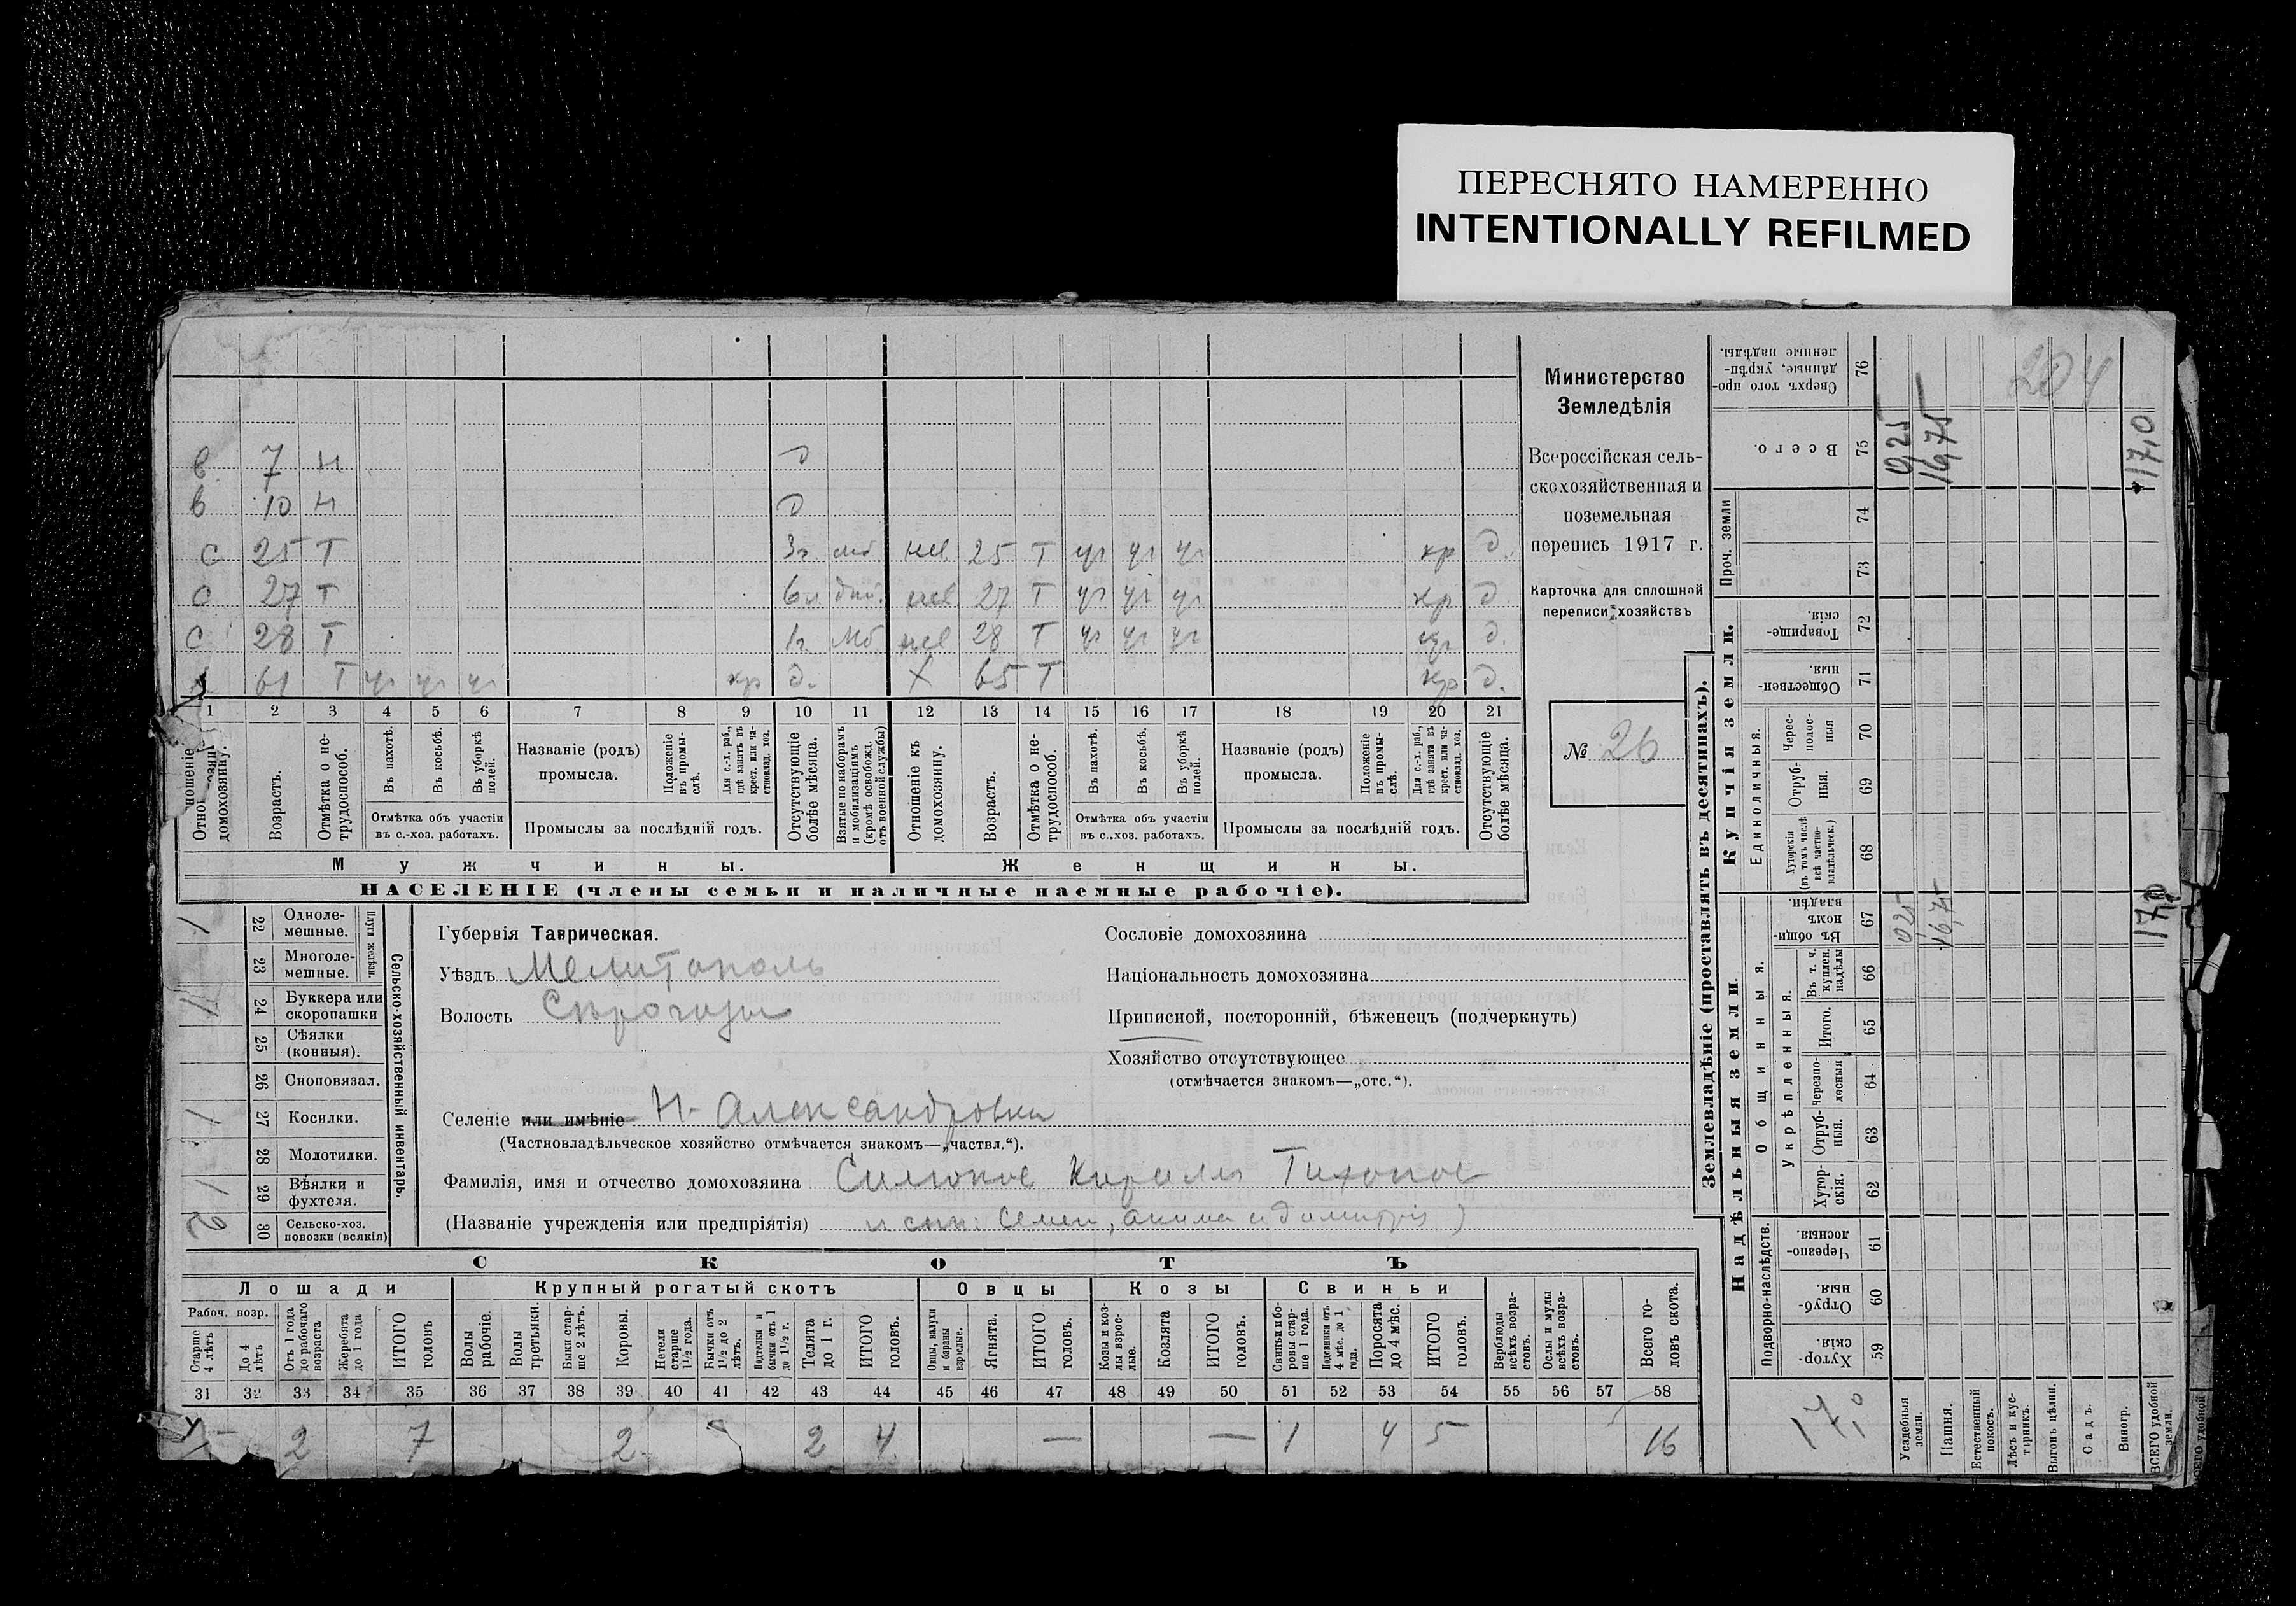 ПЕРЕСНЯТО НАМЕРЕННО
INTENTIONALLY REFILMED
204
в 7 н д
в 10 н д
с 25 Т 3г. мб нев 25 Т уч уч уч кр д.
с 27 Т нев 27 Т уч уч уч кр д
с 28 Т 1г. мб нев 28 Т уч уч уч д.
61 Т уч уч уч кр д. х 65 Т кр д.
1 2 3 4 5 6 7 8 9 10 11 12 13 14 15 16 17 18 19 20 21
Отношеніе къ домохозяину.
Возрастъ.
Отмѣтка о нетрудоспособ.
Въ пахотѣ.
Въ косьбѣ.
Въ уборкѣ полей.
Отмѣтка объ участіи въ с.-хоз. работахъ.
Названіе (родъ) промысла.
Положеніе въ промыслѣ.
Для с.-х. раб., гдѣ занятъ въ крест. или частновлад. хоз.
Промыслы за послѣдній годъ.
Отсутствующіе болѣе мѣсяца.
Взятые по наборамъ и мобилизаціямъ (кромѣ освобожд. отъ военной службы)
Отношеніе къ домохозяину.
Возрастъ.
Отмѣтка о нетрудоспособ.
Въ пахотѣ.
Въ косьбѣ.
Въ уборкѣ полей.
Отмѣтка объ участіи въ с.-хоз. работахъ.
Названіе (родъ) промысла.
Положеніе въ промыслѣ.
Для с.-х. раб., гдѣ занята въ крест. или частновлад. хоз.
Промыслы за послѣдній годъ.
Отсутствующіе болѣе мѣсяца.
Мужчины.
Женщины.
НАСЕЛЕНІЕ (члены семьи и наличные наемные рабочіе).
Министерство
Земледѣлія
Всероссійская сель-
скохозяйственная и
поземельная
перепись 1917 г.
Карточка для сплошной
переписи хозяйствъ
№ 26
Сельско-хозяйственный инвентарь.
Плуги желѣзн.
22 Одноле-мешные. 1
23 Многоле-мешные.
24 Буккера или скоропашки
25 Сѣялки (конныя).
26 Сноповязал.
27 Косилки. 1
28 Молотилки.
29 Вѣялки и фухтеля. 1
30 Сельско-хоз. повозки (всякія) 2
Губернія Таврическая.
Уѣздъ Мелитополь
Волость Сѣрогозы
Сословіе домохозяина
Національность домохозяина
Приписной, посторонній, бѣженецъ (подчеркнуть)
Хозяйство отсутствующее
(отмѣчается знакомъ—„отс.“).
Селеніе или имѣніе Н-Александровка
(Частновладѣльческое хозяйство отмѣчается знакомъ—„частвл.“).
Фамилія, имя и отчество домохозяина Кирилл Тихонов
(Названіе учрежденія или предпріятія) и сын: Семен, Акима и Димитрій)
СКОТЪ
Лошади
Крупный рогатый скотъ
Овцы
Козы
Свиньи
Рабоч. возр.
Старше 4 лѣтъ
До 4 лѣтъ
Отъ 1 года до рабочаго возраста
Жеребята до 1 года
ИТОГО головъ
Волы рабочіе.
Волы третьяки.
Быки старше 2 лѣтъ.
Коровы.
Нетели старше 1½ года.
Бычки отъ 1½ до 2 лѣтъ.
Подтелки и бычки отъ 1 до 1½ г.
Телята до 1 г.
ИТОГО головъ.
Овцы, валухи и бараны взрослые.
Ягнята.
ИТОГО головъ.
Козы и козлы взрослые.
Козлята
ИТОГО головъ.
Свиньи и боровы старше 1 года.
Подсвинки отъ 4 мѣс. до 1 года.
Поросята до 4 мѣс.
ИТОГО головъ.
Верблюды всѣхъ возрастовъ.
Ослы и мулы всѣхъ возрастовъ.
Всего головъ скота.
31 32 33 34 35 36 37 38 39 40 41 42 43 44 45 46 47 48 49 50 51 52 53 54 55 56 57 58
2 7 2 2 4 — — 1 4 5 16
Землевладѣніе (проставлять въ десятинахъ).
Купчія земли.
Надѣльныя земли.
Проч. земли
Единоличныя.
Общинныя.
Укрѣпленныя.
Подворно-наслѣдств.
Сверхъ того проданные, укрѣпленные надѣлы. 76
Всего. 75 0,25 16,75 17,0
74
73
Товарищескія. 72
Общественныя. 71
Чересполосныя 70
Отрубныя. 69
Хуторскія (въ томъ числѣ всѣ частновладѣльческ.) 68
Въ общинномъ владѣн. 67 0,25 16,75 17,0
Въ т. ч. куплен. надѣлы 66
Итого. 65
Черезполосныя 64
Отрубныя. 63
Хуторскія. 62
Черезполосныя. 61
Отрубныя. 60
Хуторскія 59
17,0
Усадебныя земли.
Пашня.
Естественный покосъ.
Лѣсъ и кустарникъ.
Выгонъ цѣлин.
Садъ.
Виногр.
ВСЕГО удобной земли.